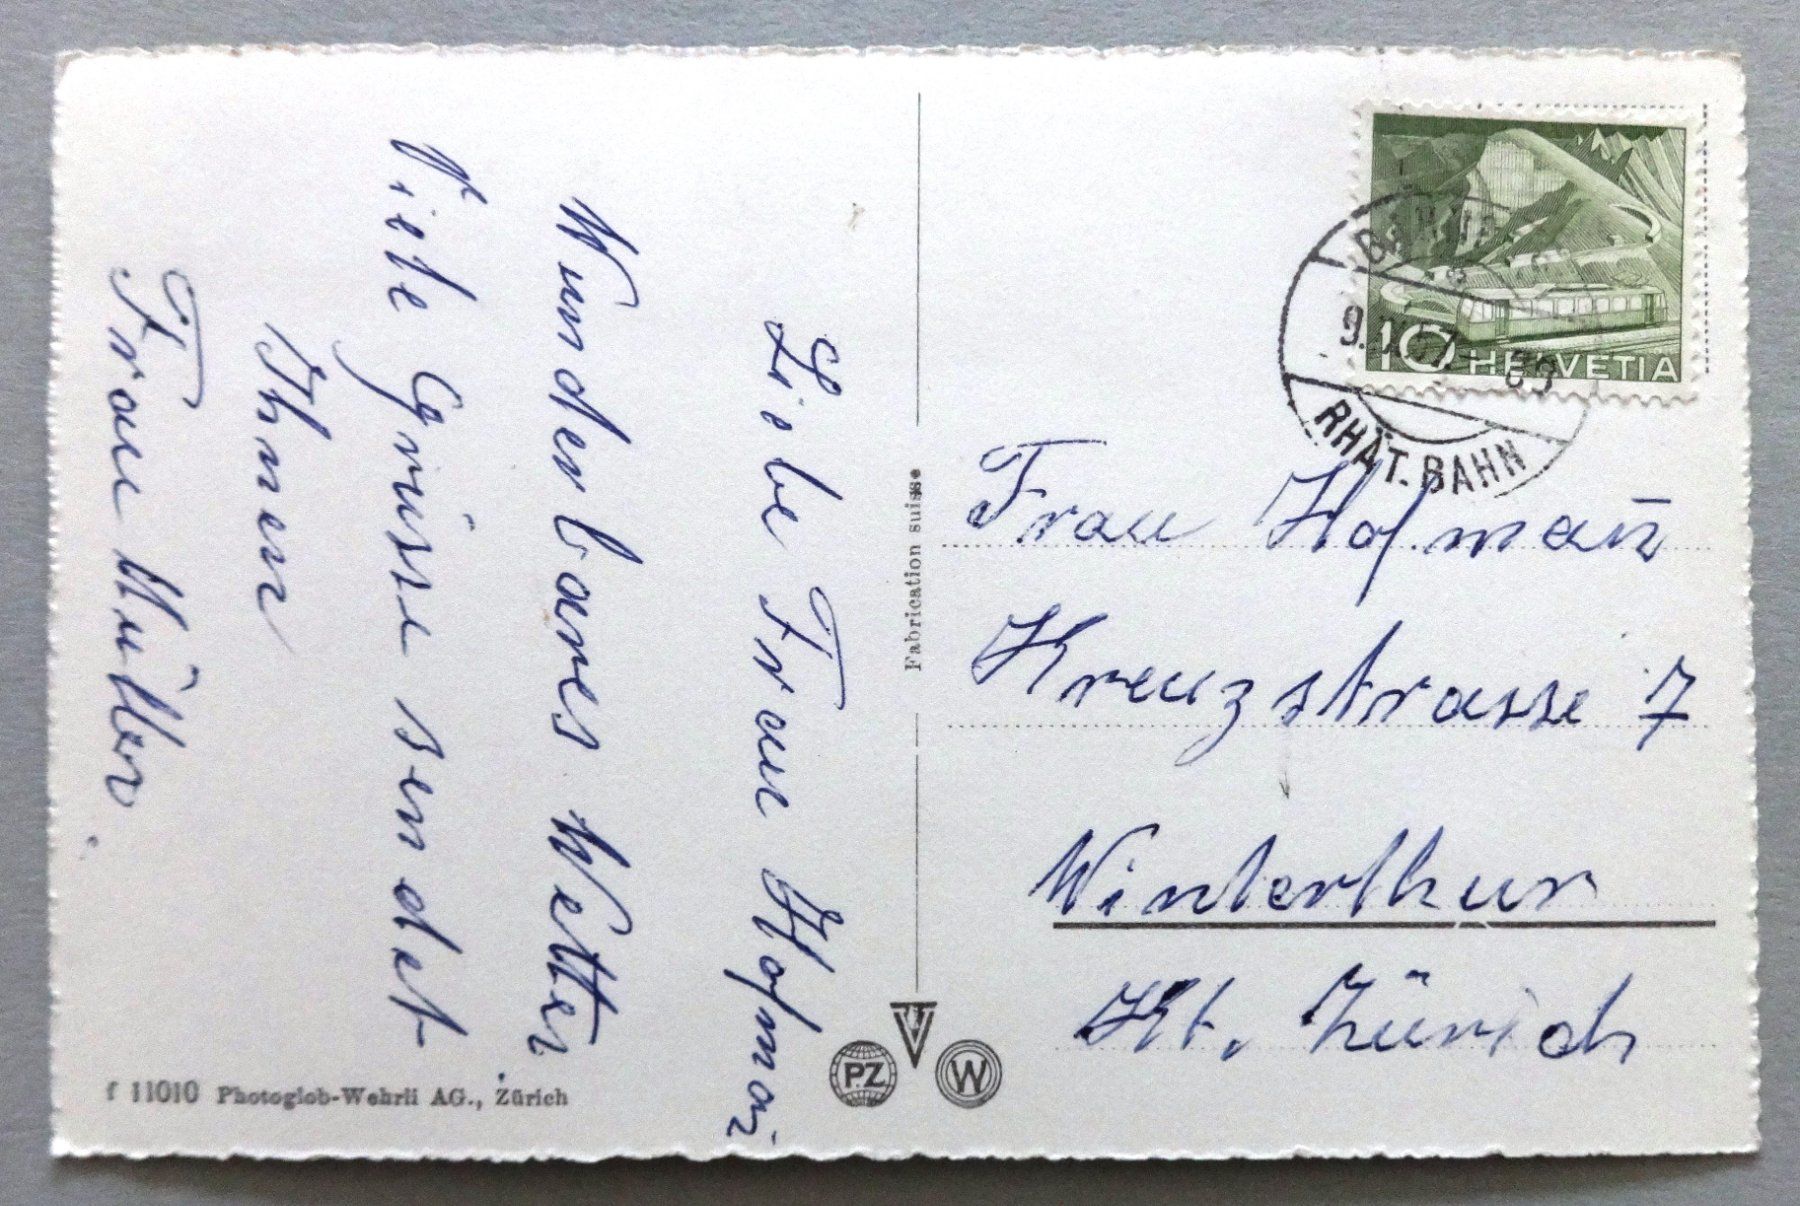 Liebe Frau Hofmañ
Wunderbares Wetter
Viele Grüsse sendet
Ihnen
Frau Müller.
Fabrication suisse
f 11010 Photoglob-Wehrli AG., Zürich
PZ
W
10 HELVETIA
RHÄT. BAHN
Frau Hofmañ
Kreuzstrasse 7
Winterthur
Kt. Zürich